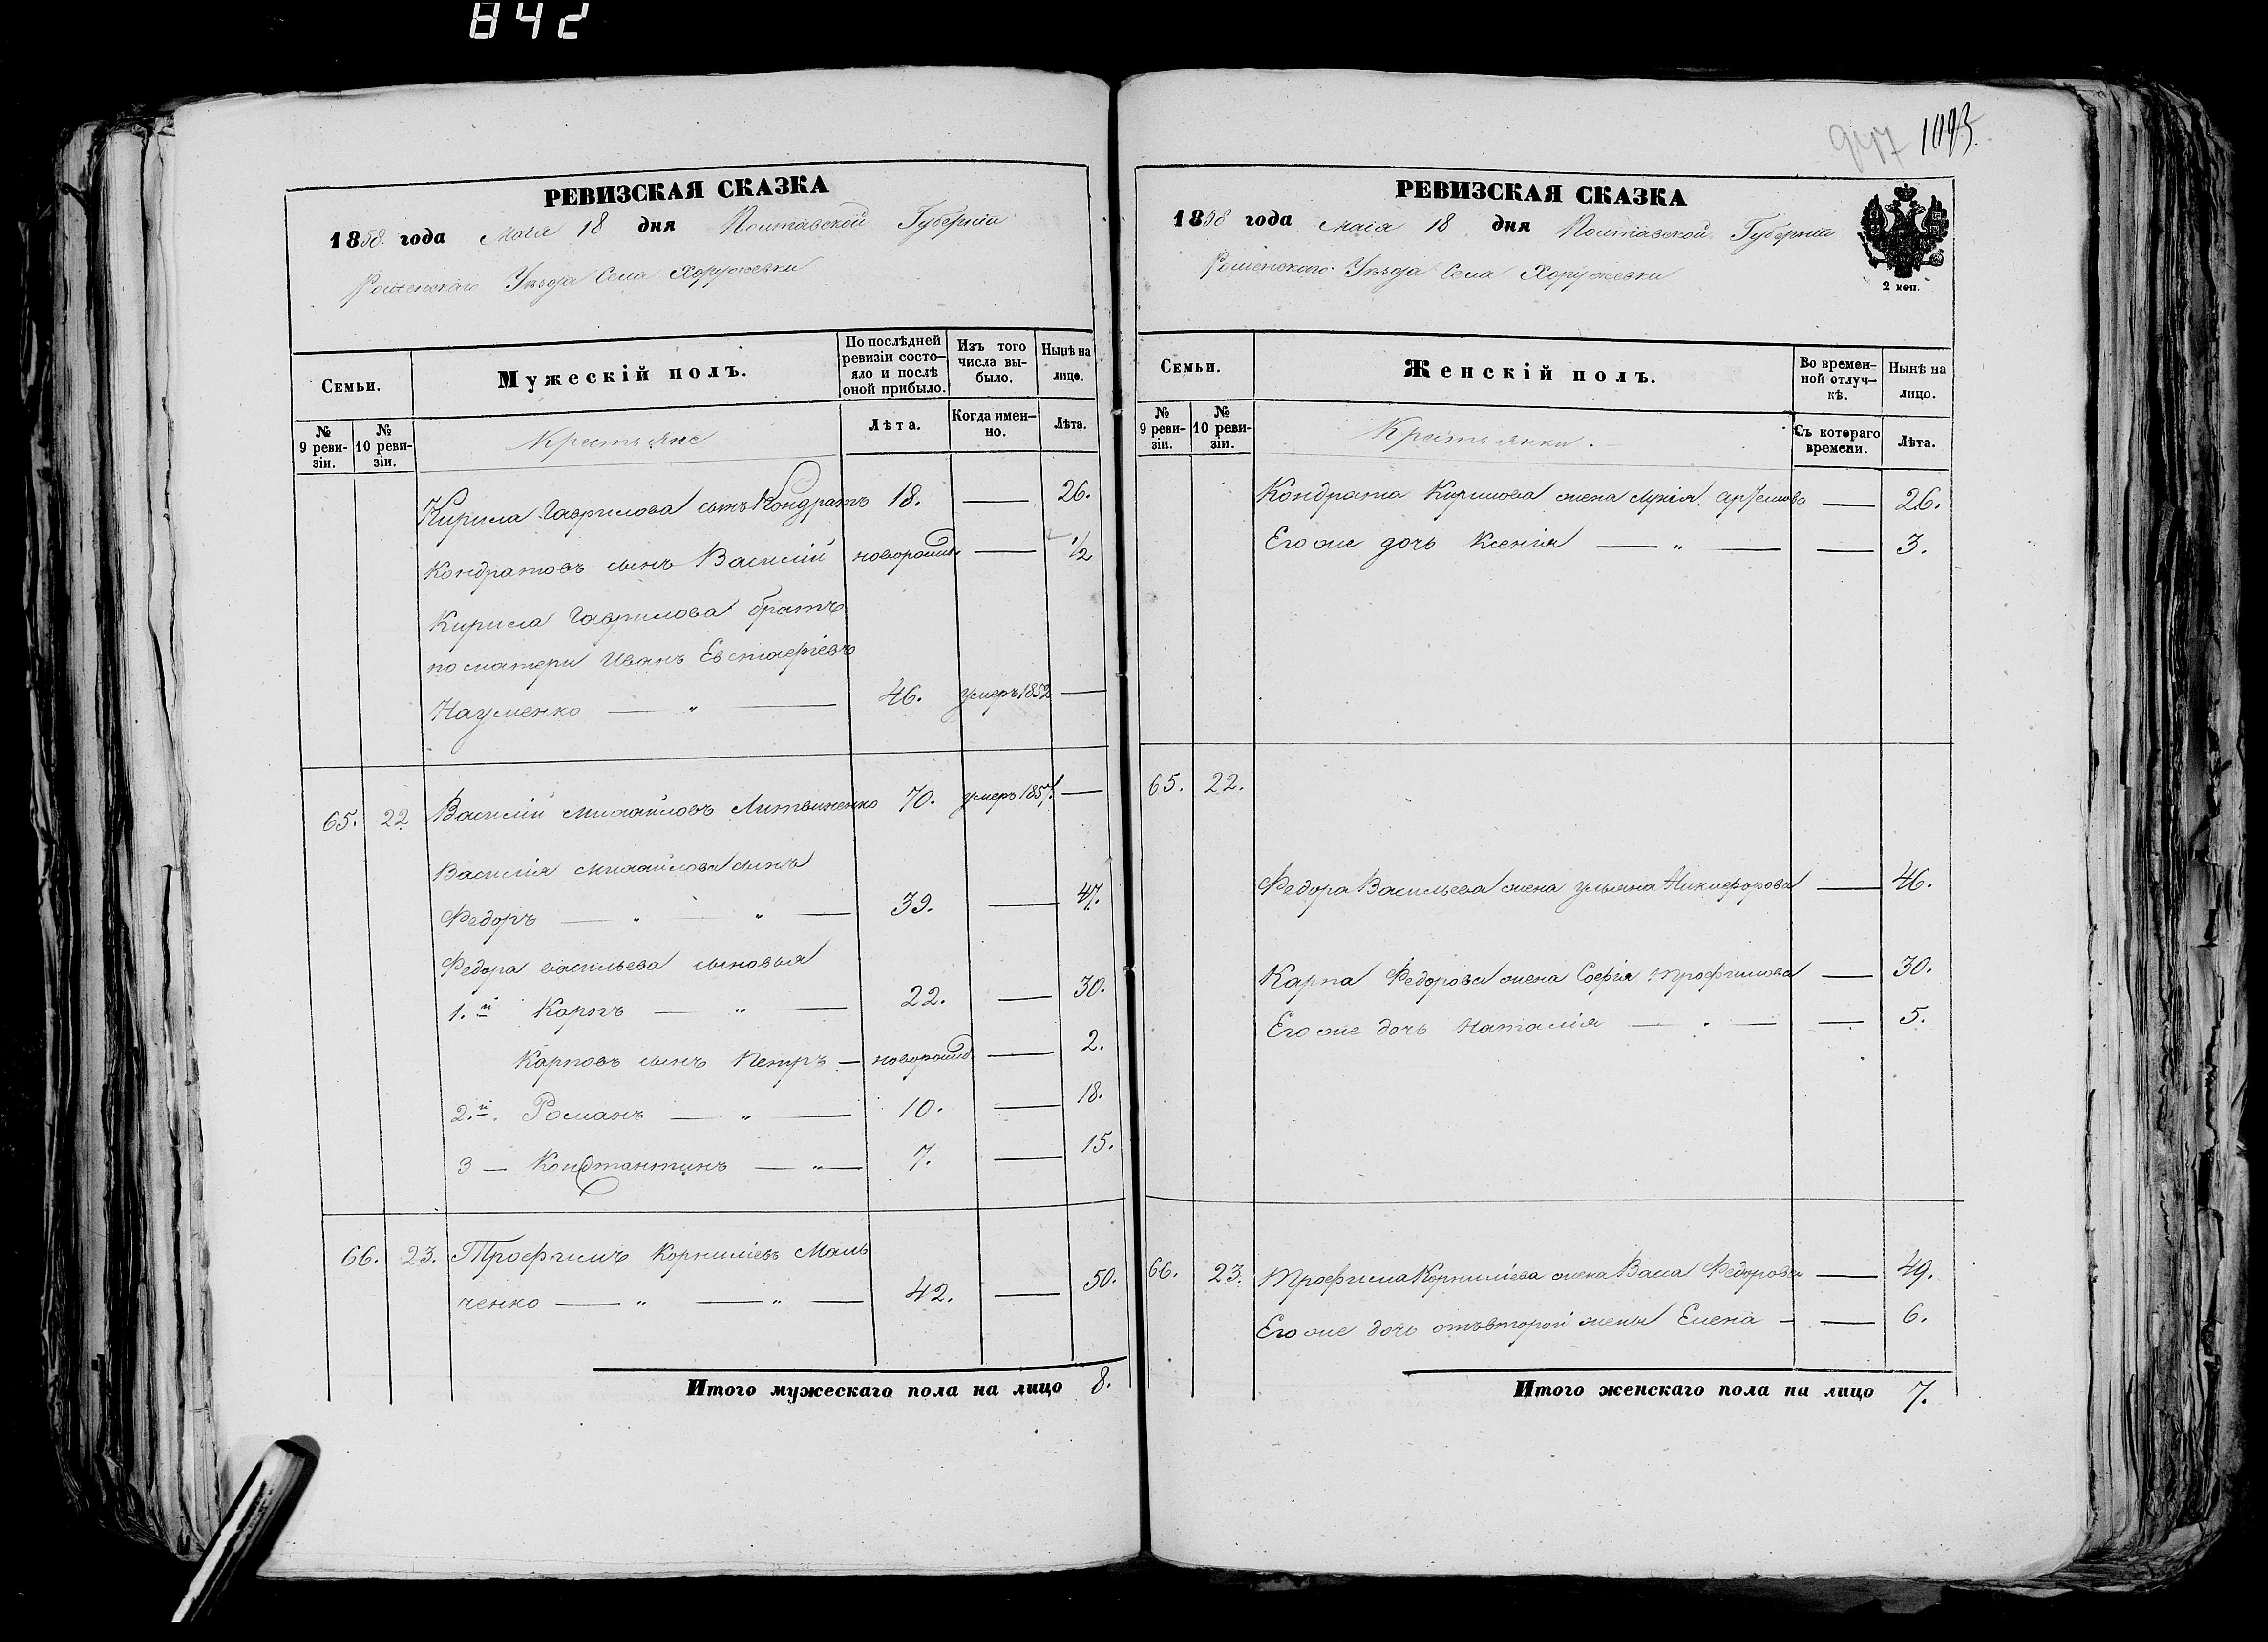 842
947 1093.
РЕВИЗСКАЯ СКАЗКА
1858 года Мая 18 дня Полтавской Губерніи
Роменскаго Уѣзда Села Хоружевки
Семьи.
Мужескій полъ.
По послѣдней ревизіи состояло и послѣ оной прибыло.
Изъ того числа выбыло.
Нынѣ на лицо.
№ 9 ревизіи.
№ 10 ревизіи.
Крестьяне
Лѣта.
Когда именно.
Лѣта.
Кирила Гаврилова сынъ Кондратъ 18. — 26.
Кондратовъ сынъ Василій новорожд. — 1/2
Кирила Гаврилова братъ
по матери Иванъ Евстафіевъ
Науменко — „ — 46. умеръ 1852 —
65. 22 Василій Михайловъ Литвиненко 70. умеръ 1857 —
Василія Михайлова сынъ
Федоръ — „ — „ — 39. — 47.
Федора Васильева сыновья
1.й Карпъ — „ — 22. — 30.
Карповъ сынъ Петръ — новорожд. — 2.
2.й. Романъ — „ — 10. — 18.
3 — Константинъ — „ — 7. — 15.
66. 23. Трофимъ Корниліевъ Маль
ченко — „ — „ — 42. — 50.
Итого мужескаго пола на лицо 8.
РЕВИЗСКАЯ СКАЗКА
1858 года Мая 18 дня Полтавской Губерніи
Роменскаго Уѣзда Села Хоружевки
2 коп.
Семьи.
Женскій полъ.
Во временной отлучкѣ.
Нынѣ на лицо.
№ 9 ревизіи.
№ 10 ревизіи.
Крестьянки.
Съ котораго времени.
Лѣта.
Кондрата Кирилова жена — 26.
Его же дочь Ксенія — „ — — 3.
65. 22.
Федора Васильева жена Ульяна Никифорова — 46.
Карпа Федорова жена Софія Трофимова — 30.
Его же дочь Наталія — „ — — 5.
66. 23. Трофима Корниліева жена Васа Федорова — 49.
Его же дочь отъ второй жены Елена — — 6.
Итого женскаго пола на лицо 7.